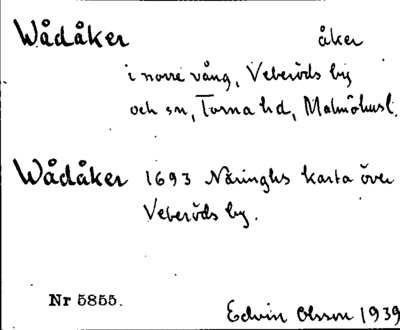 Wådåker åker
i norre vång, Veberöds by
och sn, Torna hd, Malmöhusl.
Wådåker 1693 Näringhs karta över
Veberöds by.
Nr 5855.
Edvin Olsson 1939